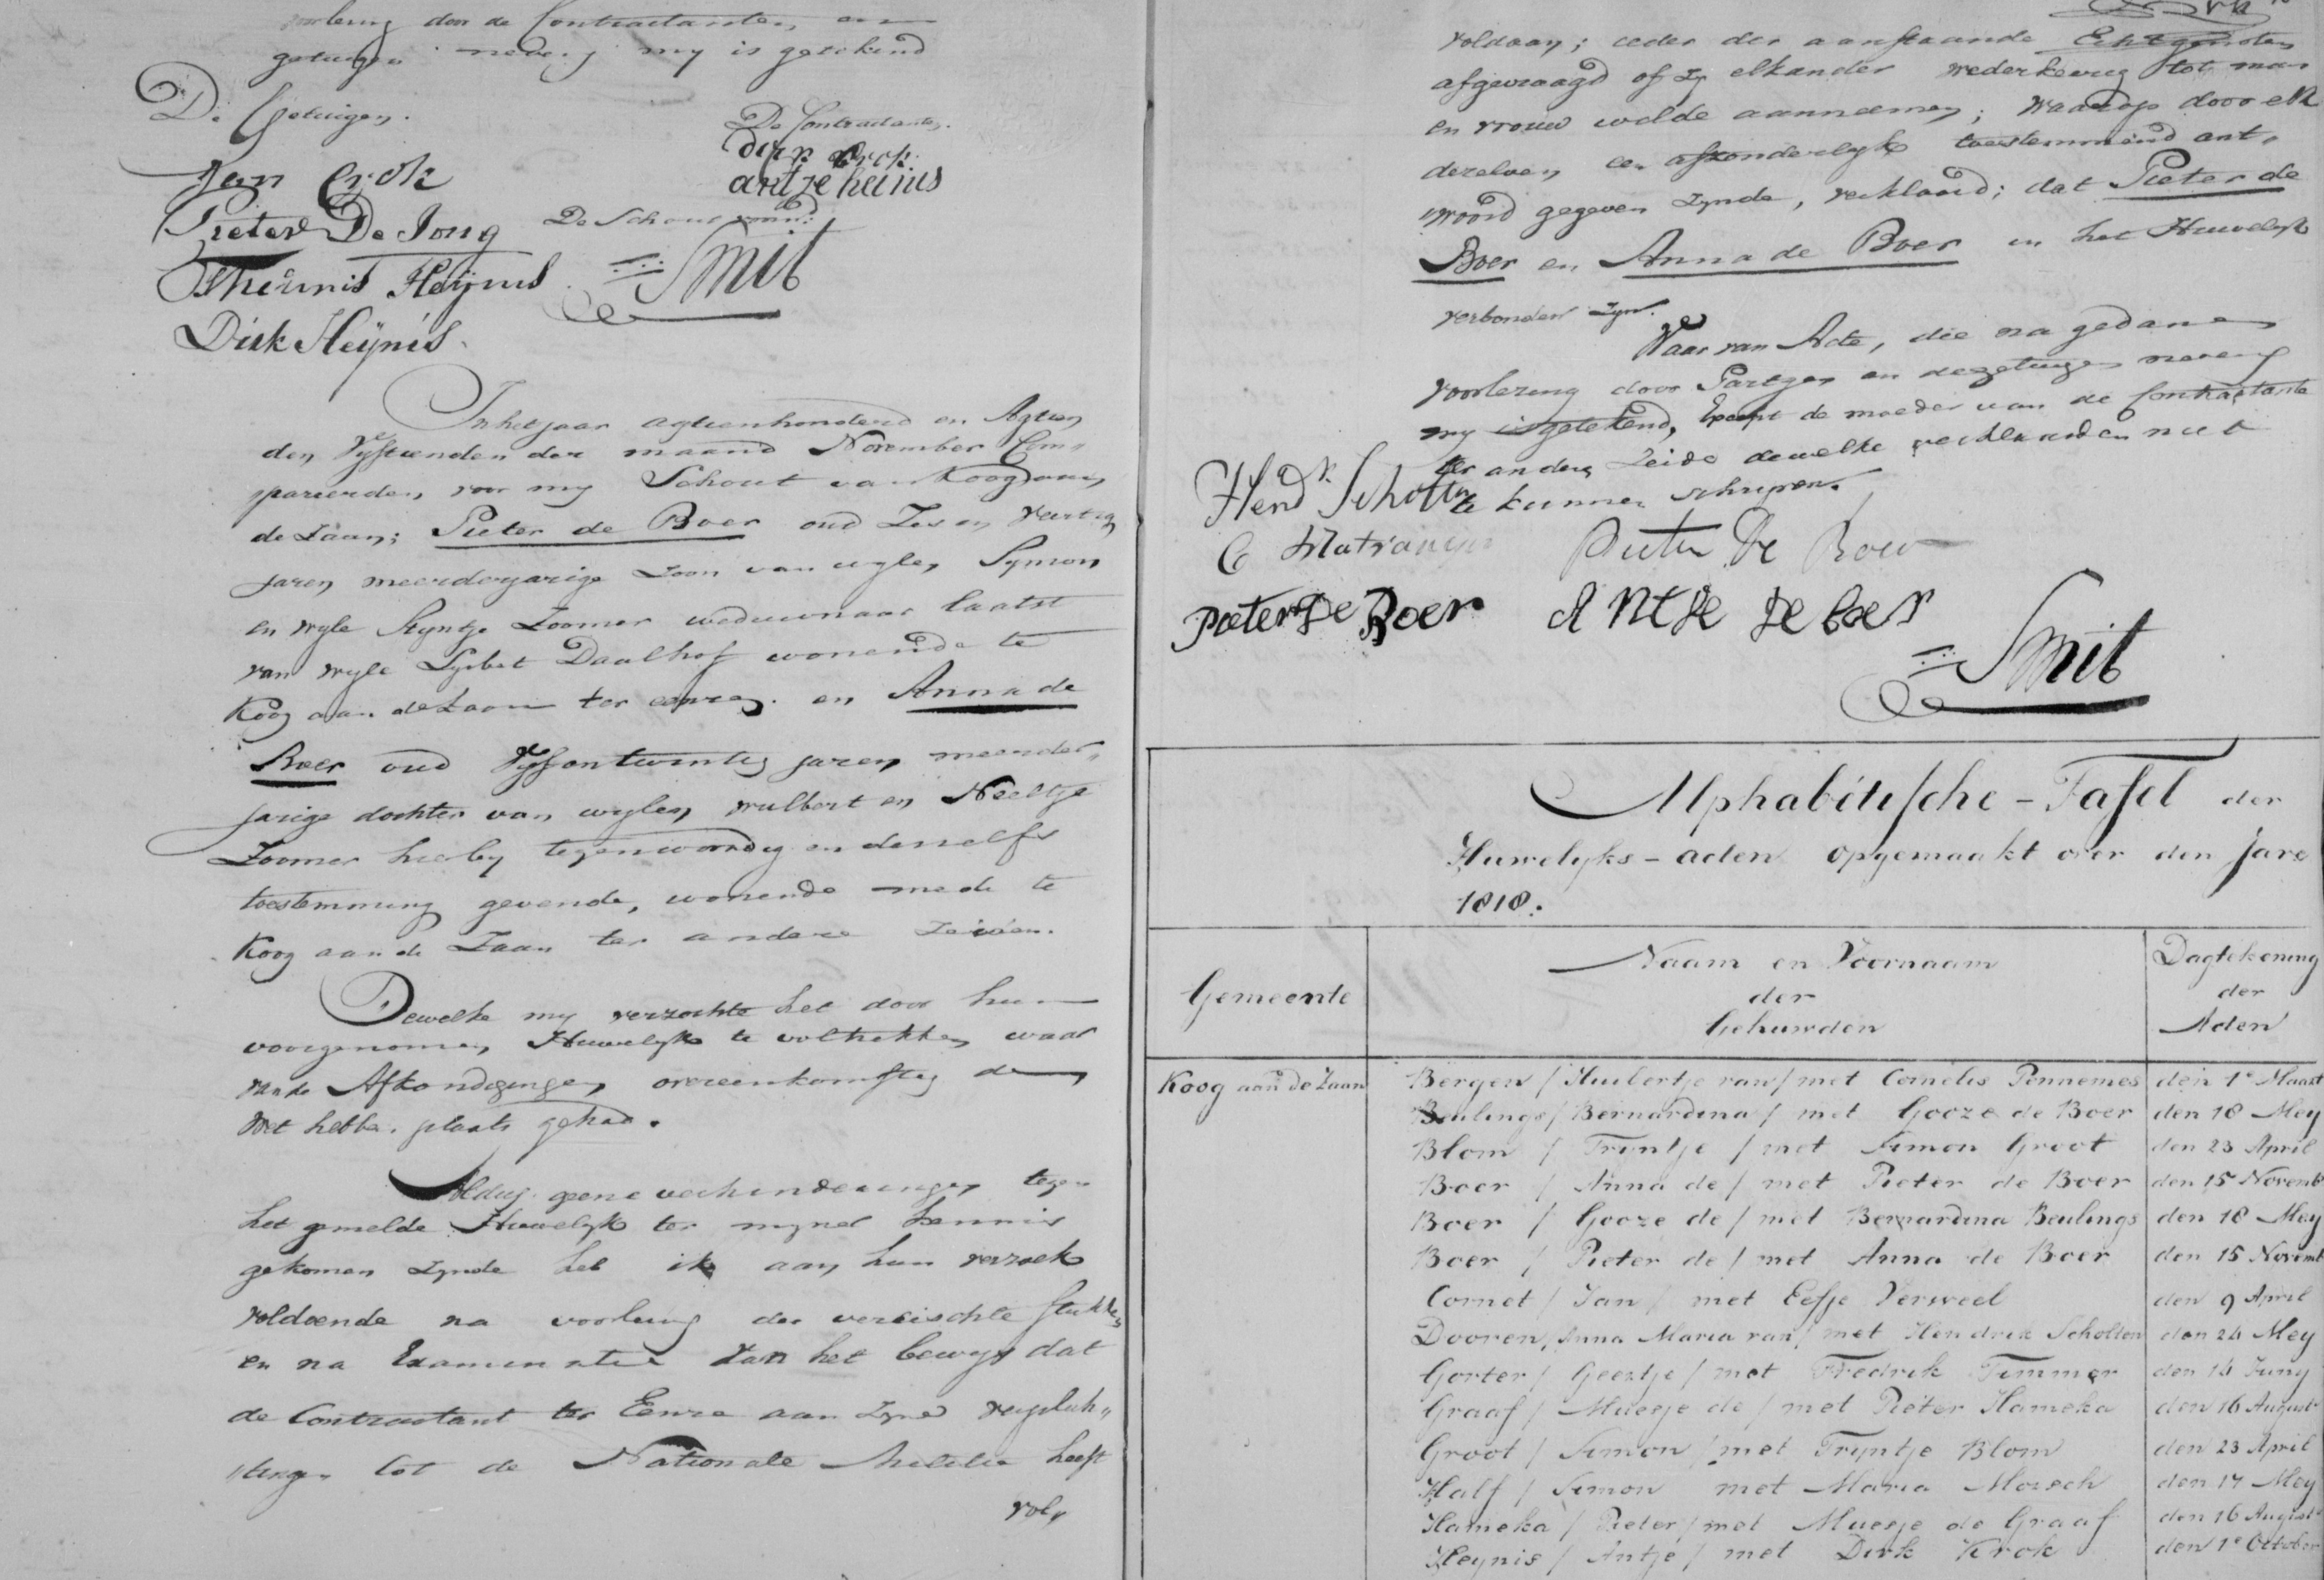 voorlezing door de Contractanten, en
getuigen nevens my is getekend
De Getuigen.
De Contractanten.
Jan Crok
dirk Crok
antje heinis
Pieter De Jong
De Schout
Smit
Theunis Heijnis
Dirk Heijnis.
In het jaar agtienhonderd en Agtien
den Vyftienden der maand November Com„
pareerden, voor my Schout van Koog aan
de Zaan; Pieter de Boer oud Zes en Veertig
Jaren meerderjarige Zoon van wylen Symon
en wyle Styntje Zoomer weduwnaar laatst
van wyle Lysbet Daalhof wonende te
Koog aan de Zaan ter eenre. en Anna de
Boer oud Vyf en twintig jaren meerder„
jarige dochter van wylen Wulbert en Neeltje
Zoomer hierby tegenwoordig en derzelfs
toestemming gevende, wonende mede te
Koog aan de Zaan ter andere Zeiden.
Dewelke my verzochte het door hun
voorgenomen Huwelyk te voltrekken waar
van de Afkondigingen overeenkomstig de
Wet hebben plaats gehad.
Aldus geene verhinderingen tegen
het gemelde Huwelyk ter mynes kennis
gekomen zynde heb ik aan hun verzoek
voldoende na voorlezing der vereischte stukken
en na Examinatie van het bewys dat
de Contractant ter Eenre aan zyne verplich„
tingen tot de Nationale Militie heeft
vol„
voldaan; ieder der aanstaande Echtgenoten
afgevraagd of zy elkander wederkeerig tot man
en vrouw wilde aanneemen; waarop door elk
derzelven een afzonderlyke toestemmend ant„
woord gegeven zynde, verklaard; dat Pieter de
Boer en Anna de Boer in het Huwelyk
verbonden zyn.
Waar van Acte, die na gedane
voorlezing door Partyen en de getuigen nevens
my is getekend, Exempt de moeder van de Contractante
ter andere Zeide dewelke verklaarden niet
te kunnen schryven.
Hendk Scholten
C
Pieter De Boer
Pieter De Boer
Antje de boer
Smit
Alphabétische-Tafel der
Huwelyks-acten opgemaakt over den Jare
1818.
Gemeente
Naam en Voornaam
der
Gehuwden
Dagtekening
der
Acten
Koog aan de Zaan
Bergen / Huibertje van / met Cornelis Pennemes den 1e Maart
Beulings / Bernardina / met Gooze de Boer den 18 Mey
Blom / Tryntje / met Simon Groot den 23 April
Boer / Anna de / met Pieter de Boer den 15 Novemb
Boer / Gooze de / met Bernardina Beulings den 18 Mey
Boer / Pieter de / met Anna de Boer den 15 Novemb
Cornet / Jan / met Eefje Verweel den 9 April
Dooren, Anna Maria van / met Hendrik Scholten den 24 Mey
Gorter / Geertje / met Fredrik Timmer den 14 Juny
Graaf / Muesje de / met Pieter Hameka den 16 August
Groot / Simon / met Tryntje Blom den 23 April
Half / Simon met Maria Morsch den 17 Mey
Hameka / Pieter / met Muesje de Graaf den 16 August
Heynis / Antje / met Dirk Krok den 1e October